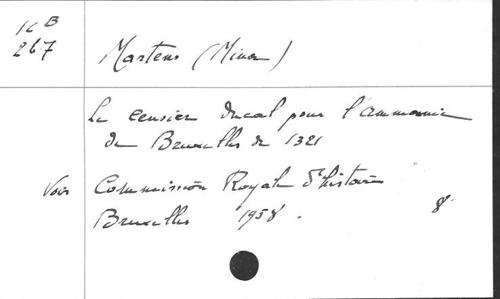 16 B
267
Martens (Mina)
Le censier ducal pour l'ammanie
de Bruxelles de 1321
Voir Commission Royale d'histoire
Bruxelles 1958. 8°